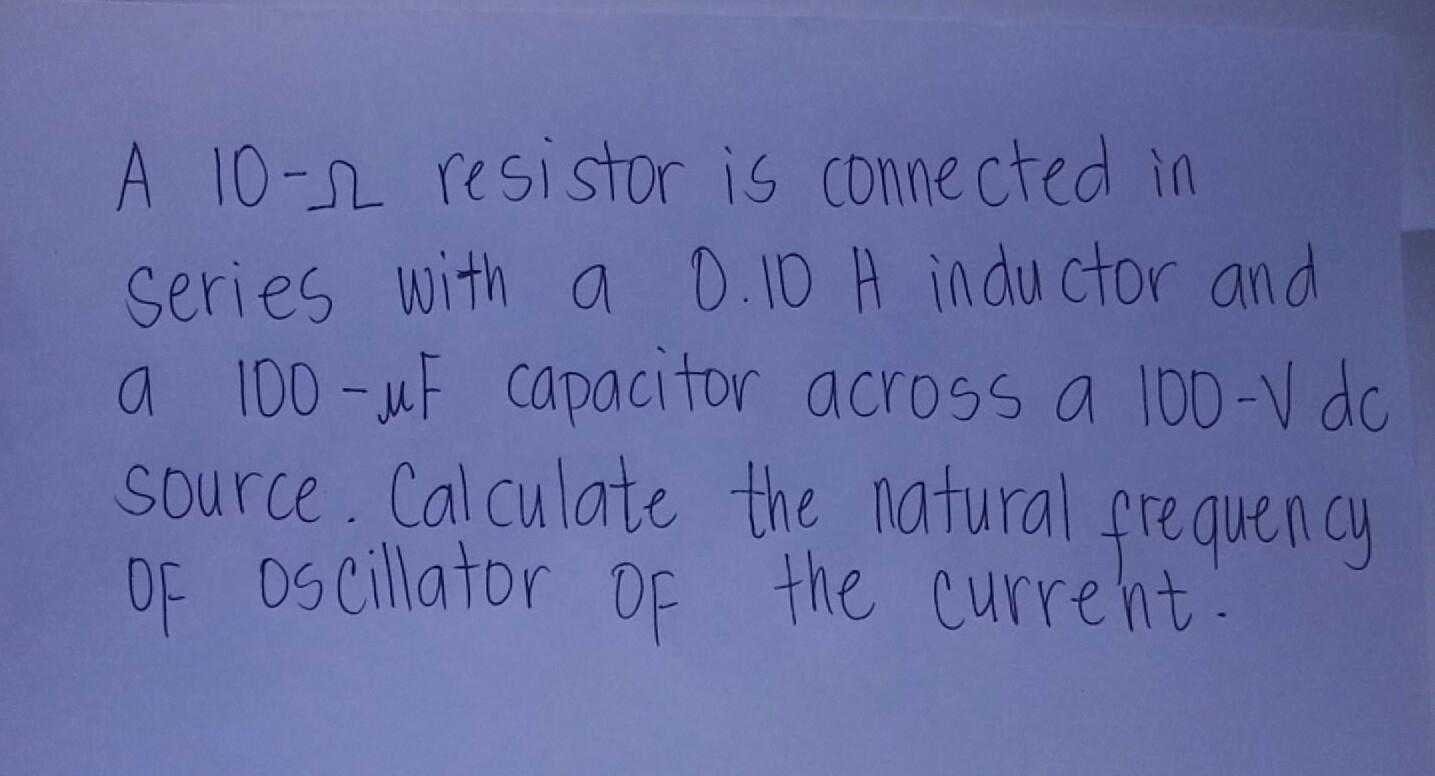 A 10-Ω resistor is connected in
series with a 0.10 H inductor and
a 100-μF capacitor across a 100-V dc
source. Calculate the natural frequency
OF oscillator OF the current.